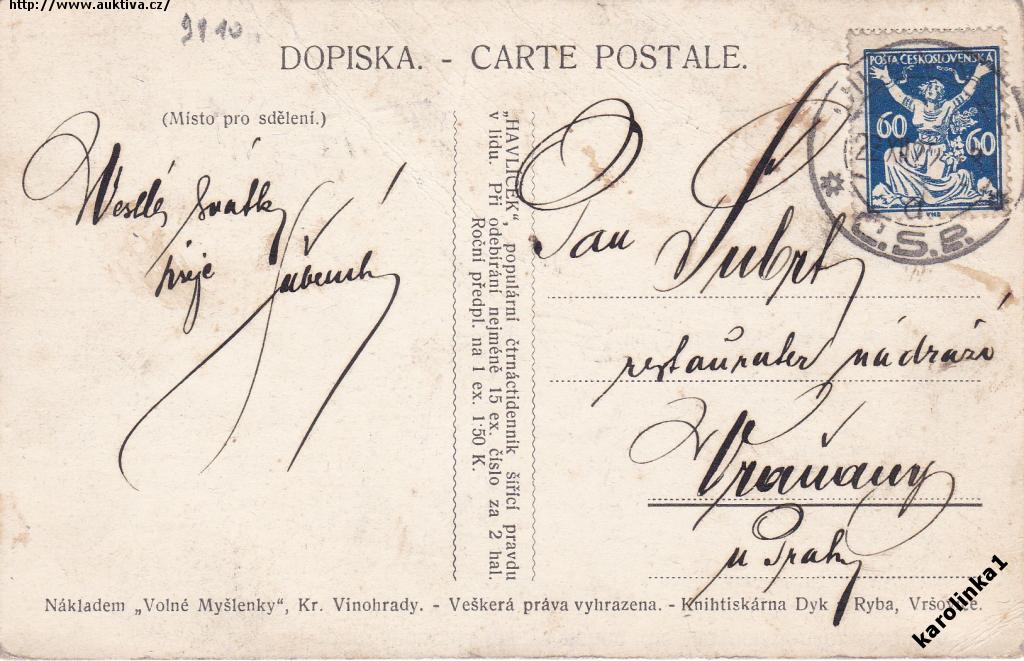 http://www.auktiva.cz/
9110.
DOPISKA. - CARTE POSTALE.
(Místo pro sdělení.)
Veselé svátky
přeje
„HAVLÍČEK“, populární čtrnáctidenník šířící pravdu
v lidu. Při odebírání nejméně 15 ex. číslo za 2 hal.
Roční předpl. na 1 ex. 1·50 K.
POŠTA ČESKOSLOVENSKÁ
60 60
Č.S.P.
Pan Šubrt
restauratér nádraží
Vraňany
u Prahy
Nákladem „Volné Myšlenky“, Kr. Vinohrady. - Veškerá práva vyhrazena. - Knihtiskárna Dyk a Ryba, Vršovice.
karolinka1